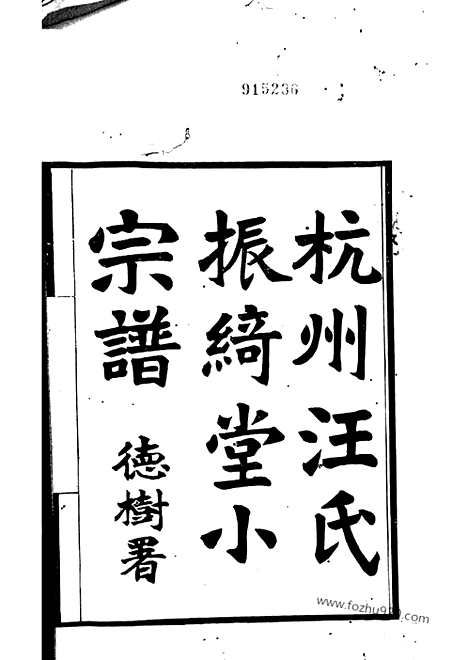 915236
杭州汪氏
振綺堂小
宗譜
德樹署
www.fozhu920.com